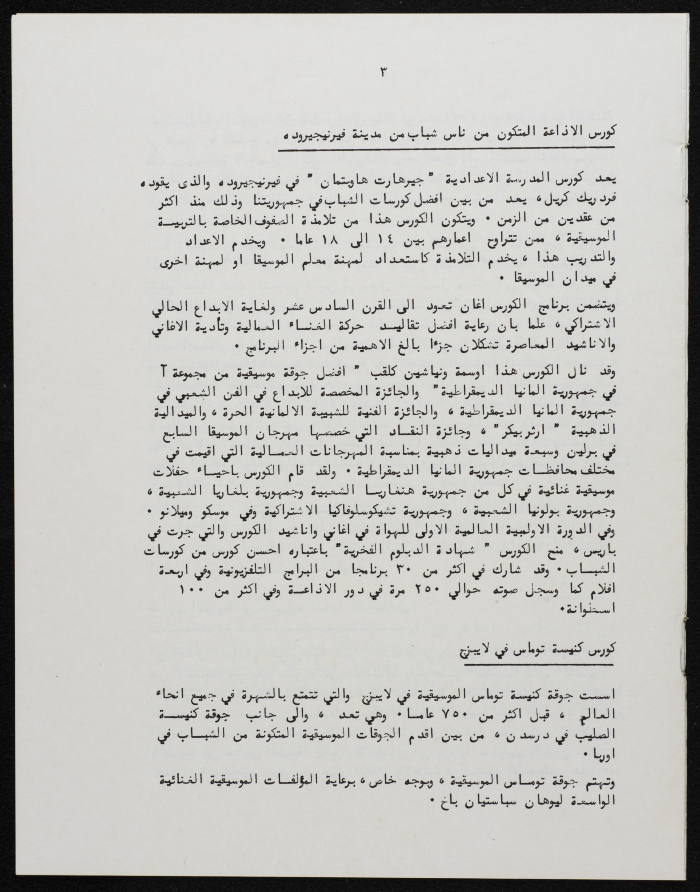 ٣
كورس الاذاعة المتكون من ناس شباب من مدينة فيرنيجيروده
يعد كورس المدرسة الاعدادية " جيرهارت هاوبتمان " في فيرنيجيروده والذى يقوده
فردريك كريل، يعد من بين افضل كورسات الشباب في جمهوريتنا وذلك منذ اكثر
من عقدين من الزمن . ويتكون الكورس هذا من تلامذة الصفوف الخاصة بالتربية
الموسيقية ، ممن تتراوح اعمارهم بين ١٤ الى ١٨ عاما . ويخدم الاعداد
والتدريب هذا ، يخدم التلامذة كاستعداد لمهنة معلم الموسيقا او لمهنة اخرى
في ميدان الموسيقا .
ويتضمن برنامج الكورس اغان تعود الى القرن السادس عشر ولغاية الابداع الحالي
الاشتراكي ، علما بان رعاية افضل تقاليد حركة الغناء العمالية وتأدية الاغاني
والاناشيد المعاصرة تشكلان جزءا بالغ الاهمية من اجزاء البرنامج .
وقد نال الكورس هذا اوسمة ونياشين كلقب " افضل جوقة موسيقية من مجموعة آ
في جمهورية المانيا الديمقراطية " والجائزة المخصصة للابداع في الفن الشعبي في
جمهورية المانيا الديمقراطية ، والجائزة الفنية للشبيبة الالمانية الحرة ، والميدالية
الذهبية " ارثر بيكر " ، وجائزة النقاد التي خصصها مهرجان الموسيقا السابع
في برلين وسبعة ميداليات ذهبية بمناسبة المهرجانات العمالية التي اقيمت في
مختلف محافظات جمهورية المانيا الديمقراطية . ولقد قام الكورس باحياء حفلات
موسيقية غنائية في كل من جمهورية هنغاريا الشعبية وجمهورية بلغاريا الشعبية ،
وجمهورية بولونيا الشعبية ، وجمهورية تشيكوسلوفاكيا الاشتراكية وفي موسكو وميلانو .
وفي الدورة الاولمبية العالمية الاولى للهواة في اغاني واناشيد الكورس والتي جرت في
باريس، منح الكورس " شهادة الدبلوم الفخرية " باعتباره احسن كورس من كورسات
الشباب . وقد شارك في اكثر من ٣٠ برنامجا من البرامج التلفزيونية وفي اربعة
افلام كما وسجل صوته حوالي ٢٥٠ مرة في دور الاذاعة وفي اكثر من ١٠٠
اسطوانة.
كورس كنيسة توماس في لايبزج
اسست جوقة كنيسة توماس الموسيقية في لايبزج والتي تتمتع بالشهرة في جميع انحاء
العالم ، قبل اكثر من ٧٥٠ عاما . وهي تعد ، والى جانب جوقة كنيسة
الصليب في درسدن ، من بين اقدم الجوقات الموسيقية المتكونة من الشباب في
اوربا .
وتهتم جوقة توماس الموسيقية ، وبوجه خاص ، برعاية المؤلفات الموسيقية الغنائية
الواسعة ليوهان سباستيان باخ .